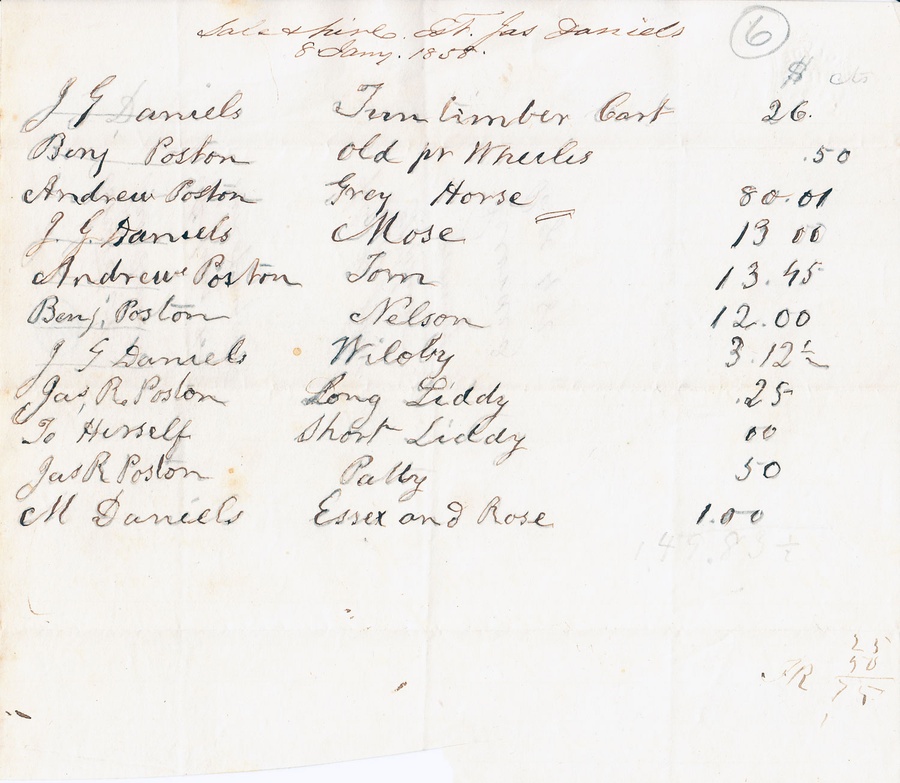 Sale & hire. Est. Jas Daniels
8 Jany. 1858.
6
$ cts
J G Daniels Turn timber Cart 26.
Benj Poston Old pr Wheels .50
Andrew Poston Grey Horse 80.01
J. G. Daniels Mose 13 00
Andrew Poston Tom 13.45
Benj, Poston Nelson 12.00
J G Daniels Wiloby 3.12½
Jas, R. Poston Long Liddy .25
To Herself Short Liddy 00
Jas R Poston Patty 50
M Daniels Essex and Rose 1.00
149.83½
25
50
JR 75